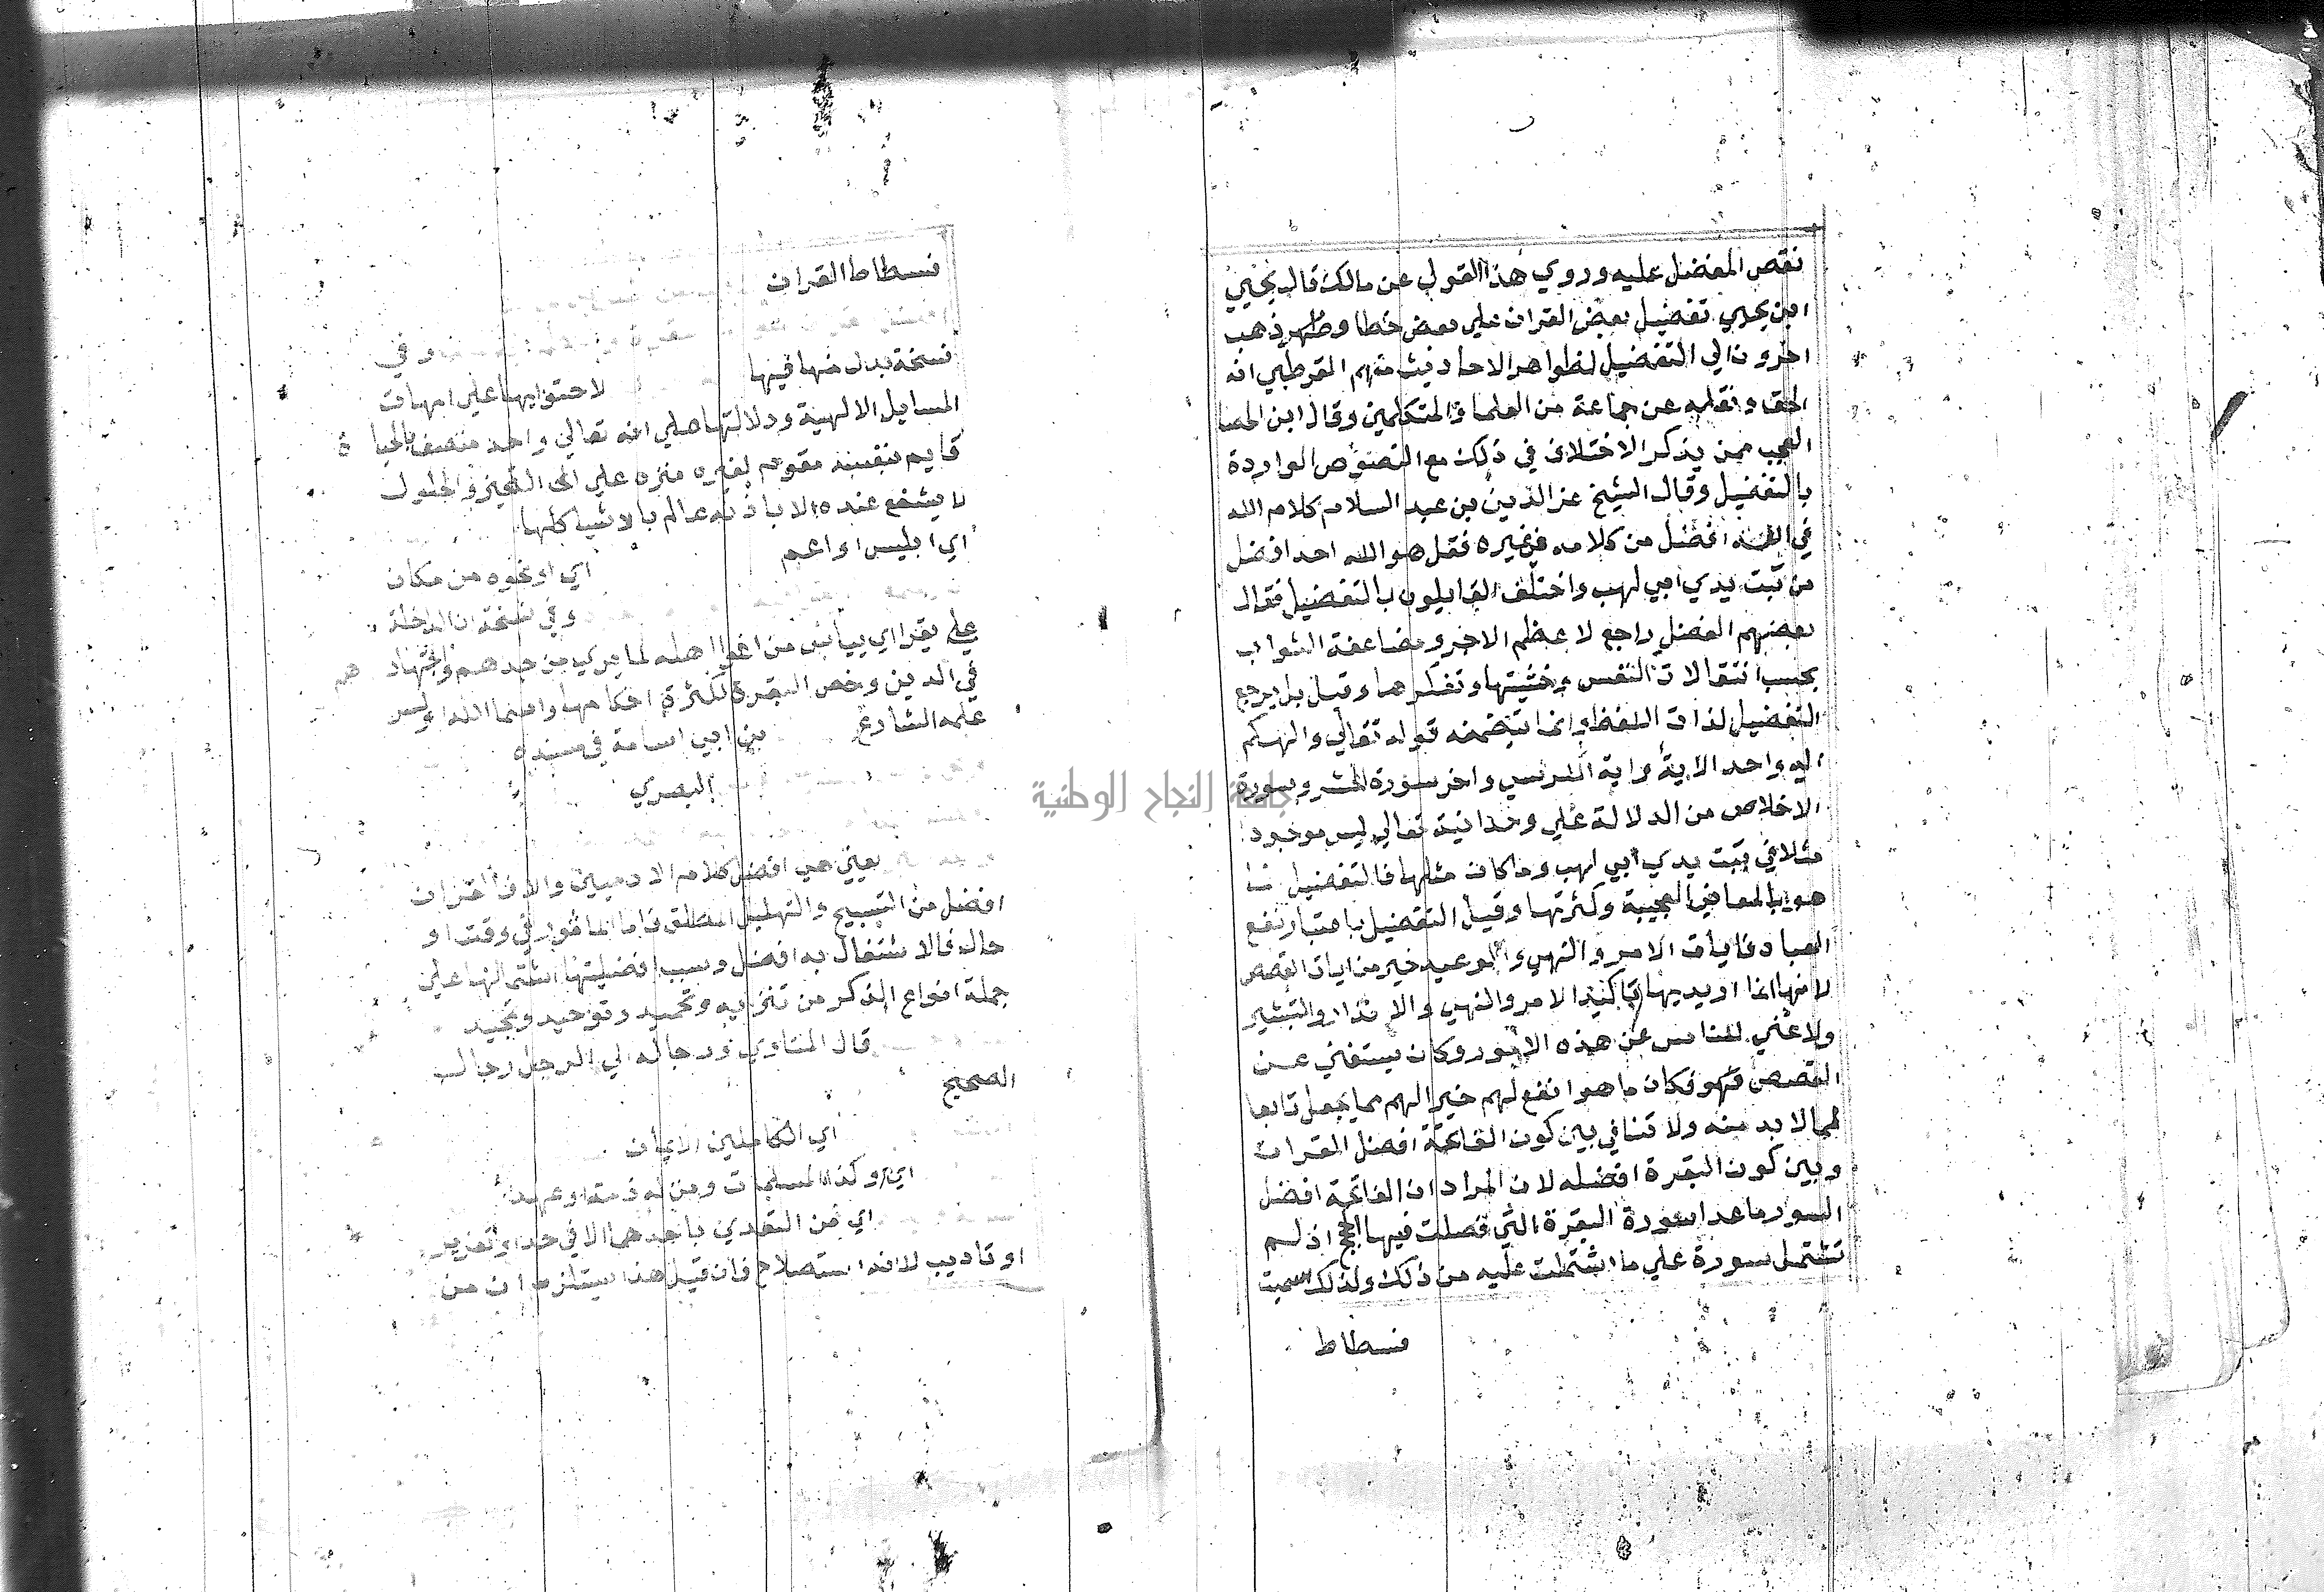 نقص المفضل عليه وروي هذا القول عن مالك قال يحيي
ابن يحيي تفضيل بعض القران علي بعض خطا وظهر ذهب
اخرون الي التفضيل لظواهر الاحاديث منهم القرطبي انه
الحق ونقله عن جماعة من العلما والمتكلمين وقال ابن الحصا
العجب ممن يذكر الاختلاف في ذلك مع النصوص الواردة
بالتفضيل وقال الشيخ عز الدين بن عبد السلام كلام الله
في الله افضل من كلامه في غيره فقل هو الله احد افضل
من تبت يدي ابي لهب واختلف القايلون بالتفضيل فقال
بعضهم الفضل راجع لاعظم الاجر ومضاعفة الثواب
بحسب انتقالات النفس وخشيتها وتفكرها وقيل بل يرجع
التفضيل لذات اللفظ وانما تتضمنه قوله تعالي والهكم
اله واحد الاية واية الكرسي واخر سورة الحشر وسورة
الاخلاص من الدلالة علي وحدانيته تعالي ليس موجودا
مثلا في تبت يدي ابي لهب وما كان مثلها فالتفضيل انما
هو بالمعاني العجيبة وكثرتها وقيل التفضيل باعتبار نفع
العباد فايات الامر والنهي والوعيد خير من ايات القصص
لانها انما اريد بها تاكيد الامر والنهي والانذار والتبشير
ولا غني للناس عن هذه الامور وكان يستغني عن
القصص فهو فكان ما هو انفع لهم خيرا لهم مما يجعل تابعا
لما لا بد منه ولا تنافي بين كون الفاتحة افضل القران
وبين كون البقرة افضله لان المراد ان الفاتحة افضل
السور ما عدا سورة البقرة التي فصلت فيها الحجج اذ لم
تشتمل سورة علي ما اشتملت عليه من ذلك ولذلك سميت
فسطاط
فسطاط القران
وفي
نسخة بدل منها فيها
لاحتوايها علي امهات
المسايل الالهية ودلالتها علي انه تعالي واحد متصف بالحياة
قايم بنفسه مقوم لغيره منزه علي التحيز والحلول
لا يشفع عنده الا باذنه عالم بالاشيا كلها
اي ابليس او اعم
اي او نحوه من مكان
وفي نسخة ان الداخلة
علي يقرا اي يياس من اغوا اهله لما يري من جدهم واجتهادهم
في الدين وخص البقرة لكثرة احكامها واسما الله او لسر
علمه الشارع
بن ابي اسامة في مسنده
البصري
يعني هي افضل كلام الادميين والا فالقران
افضل من التسبيح والتهليل المطلق فاما الماثور في وقت او
حال فالاشتغال به افضل وسبب افضليتها اشتمالها علي
جملة انواع الذكر من تنزيه وتحميد وتوحيد وتمجيد
قال المناوي ورجاله الي الرجل رجال
الصحيح
اي الكاملين الايمان
اي وكذا المسلمات ومن له ذمة او عهد
اي من التعدي باحدهما الا في حد او تعزير
او تاديب لانه استصلاح فان قيل هذا يستلزم ان من
جامعة النجاح الوطنية